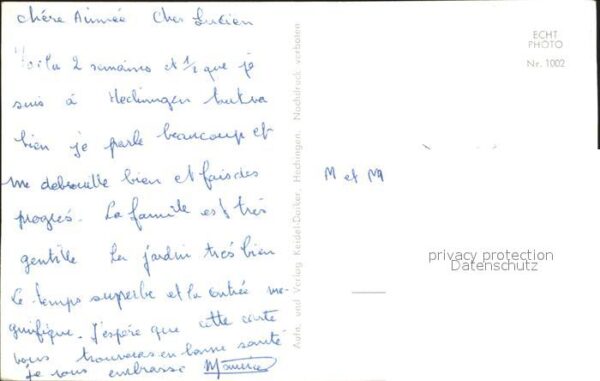 chére Aimmée Cher Lucien
Voila 2 semaines et 1/2 que je
suis à Hechinngen tout va
bien je parle beaucoup et
me debrouille bien et fais des
progrés. La famille est très
gentille Le jardin très bien
Le temps superbe et la contrée ma-
gnifique. J'espère que cette carte
vous trouveras en bonne santé
Je vous embrasse Maurice
Aufn. und Verlag Keidel-Daiker, Hechingen. Nachdruck verboten
ECHT
PHOTO
Nr. 1002
M et M
privacy protection
Datenschutz